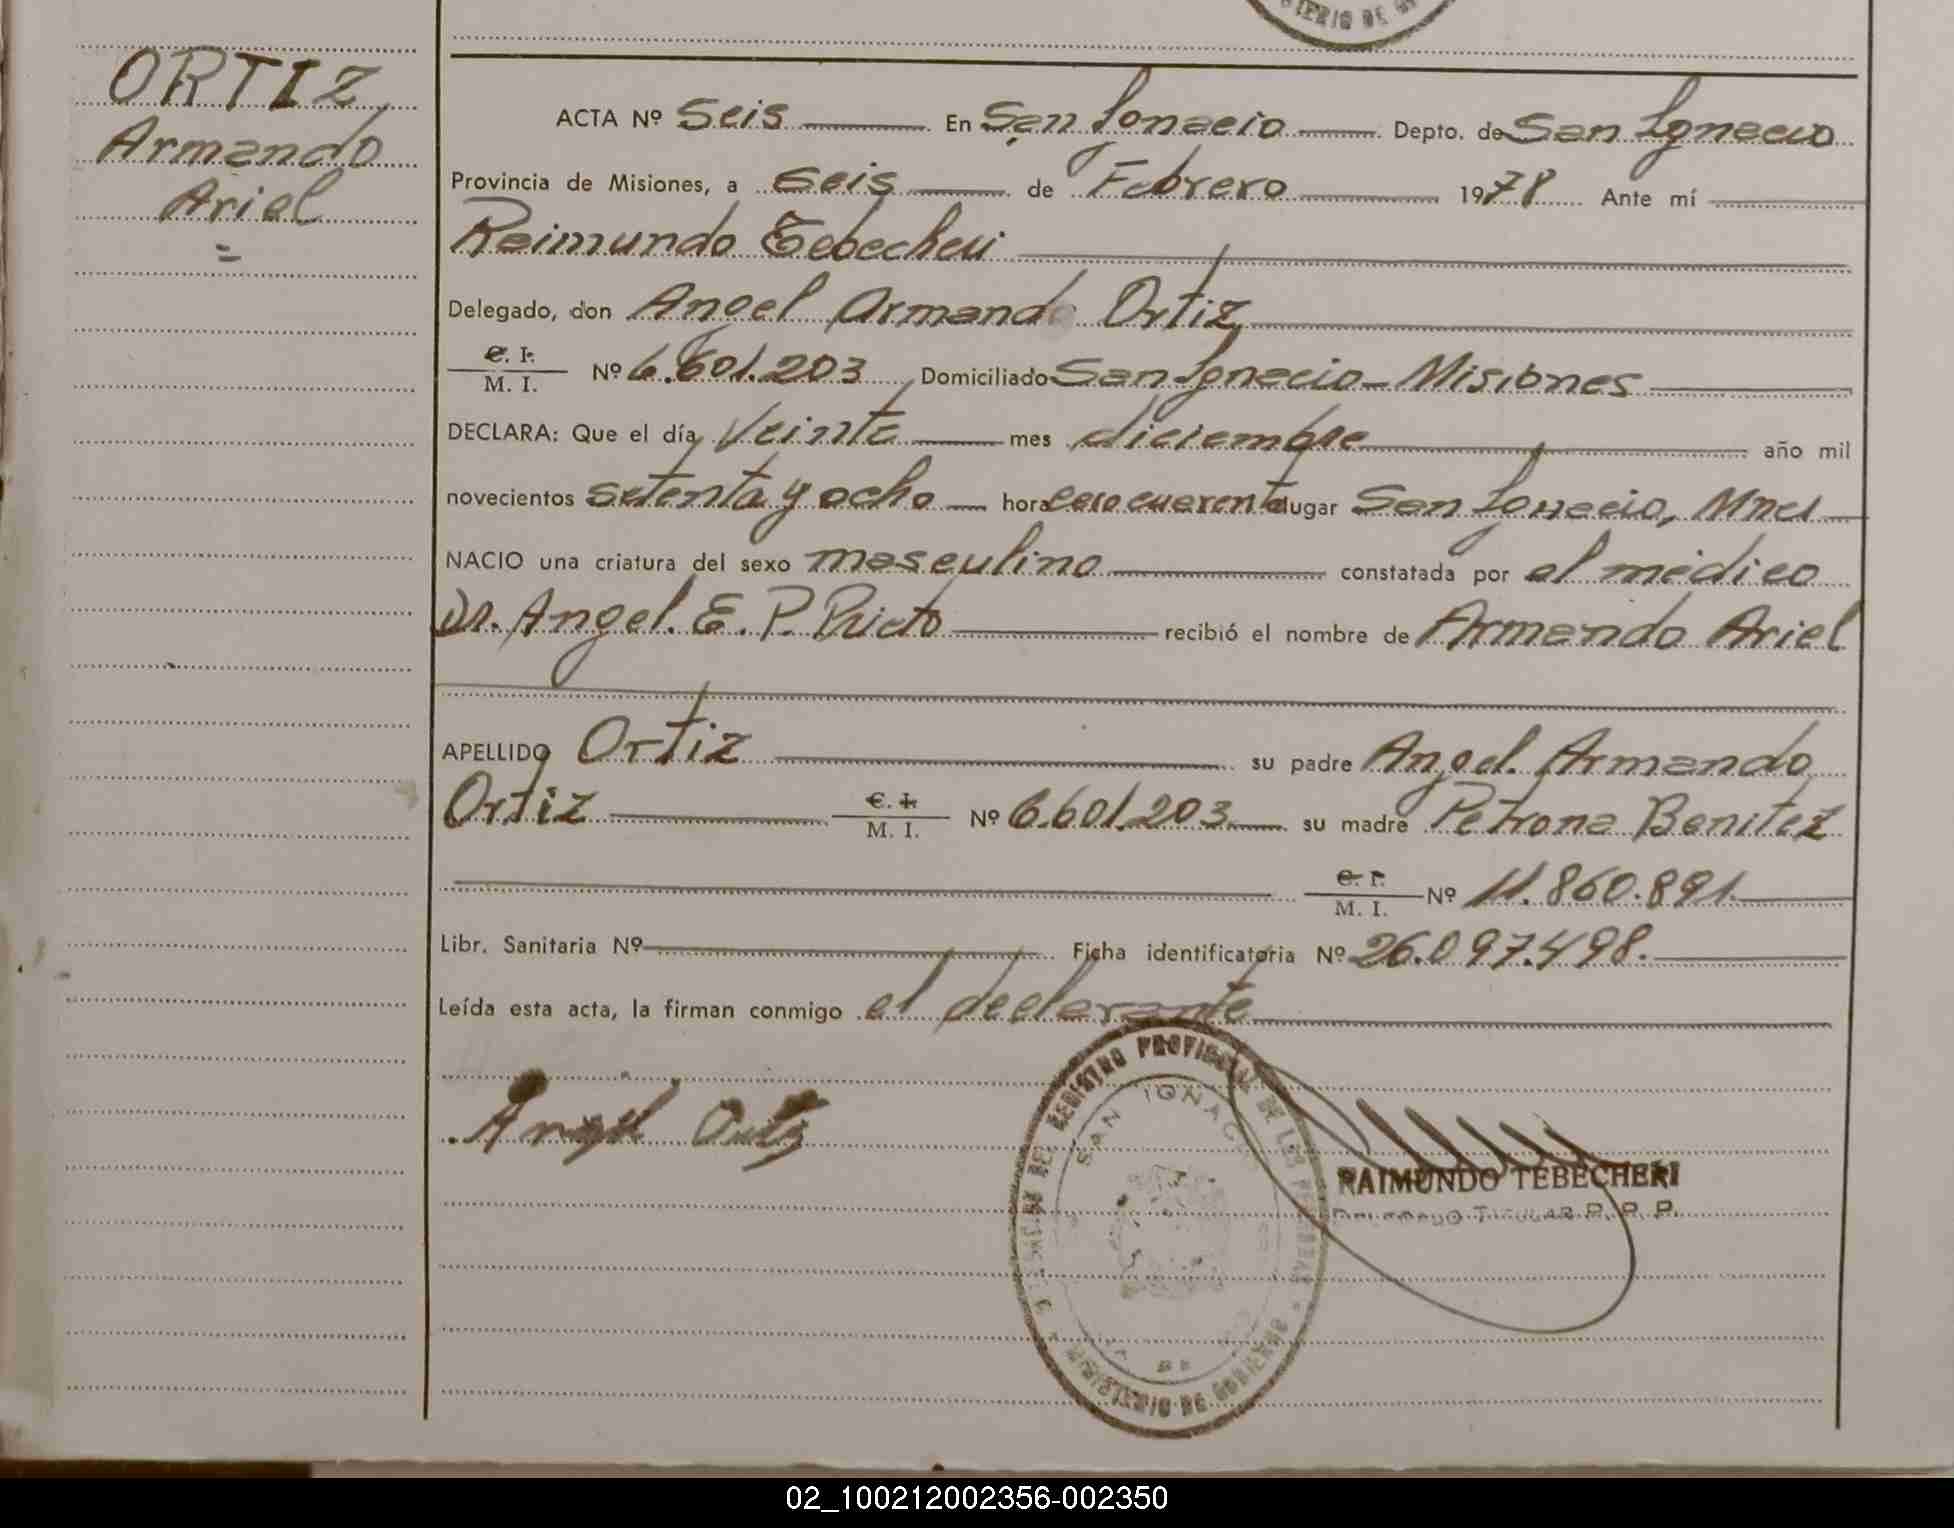 ORTIZ
Armando
Ariel
=
TERIO DE
ACTA Nº Seis En San Ignacio Depto. de San Ignacio
Provincia de Misiones, a Seis de Febrero 1978 Ante mí
Raimundo Tebecheri
Delegado, don Angel Armando Ortiz
C. I.
M. I. Nº 6.601.203 Domiciliado San Ignacio - Misiones
DECLARA: Que el día Veinte mes diciembre año mil
novecientos setenta y ocho hora cero cuarenta lugar San Ignacio, Mnes
NACIO una criatura del sexo masculino constatada por el médico
Dr. Angel. E. P. Prieto recibió el nombre de Armando Ariel
APELLIDO Ortiz su padre Angel. Armando
Ortiz C. I. M. I. Nº 6.601.203 su madre Petrona Benitez
C. I. M. I. Nº 11.860.891.
Libr. Sanitaria Nº Ficha identificatoria Nº 26.097.498.
Leída esta acta, la firman conmigo el declarante
Angel Ortiz
DEL REGISTRO PROVINCIAL DE LAS PERSONAS
SAN IGNACIO
MINISTERIO DE GOBIERNO
RAIMUNDO TEBECHERI
DELEGADO TITULAR R. P. P.
02_100212002356-002350